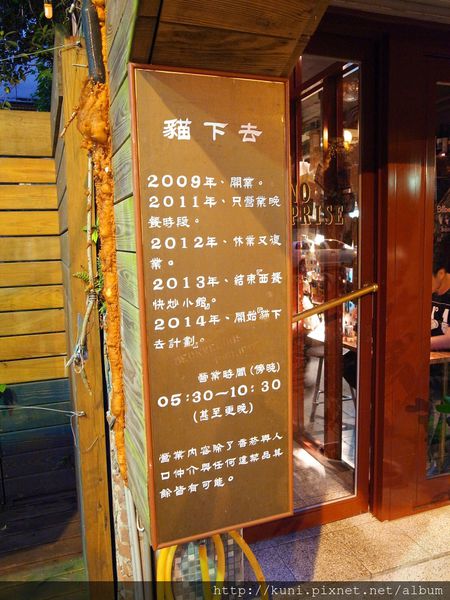 貓下去
2009年、開業。
2011年、只營業晚
餐時段。
2012年、休業又復
業。
2013年、結束西餐
快炒小館。
2014年、開始貓下
去計劃。
營業時間(傍晚)
05:30—10:30
(甚至更晚)
營業內容除了香菸與人
口仲介與任何違禁品其
餘皆有可能。
NO
http://kuni.pixnet.net/album